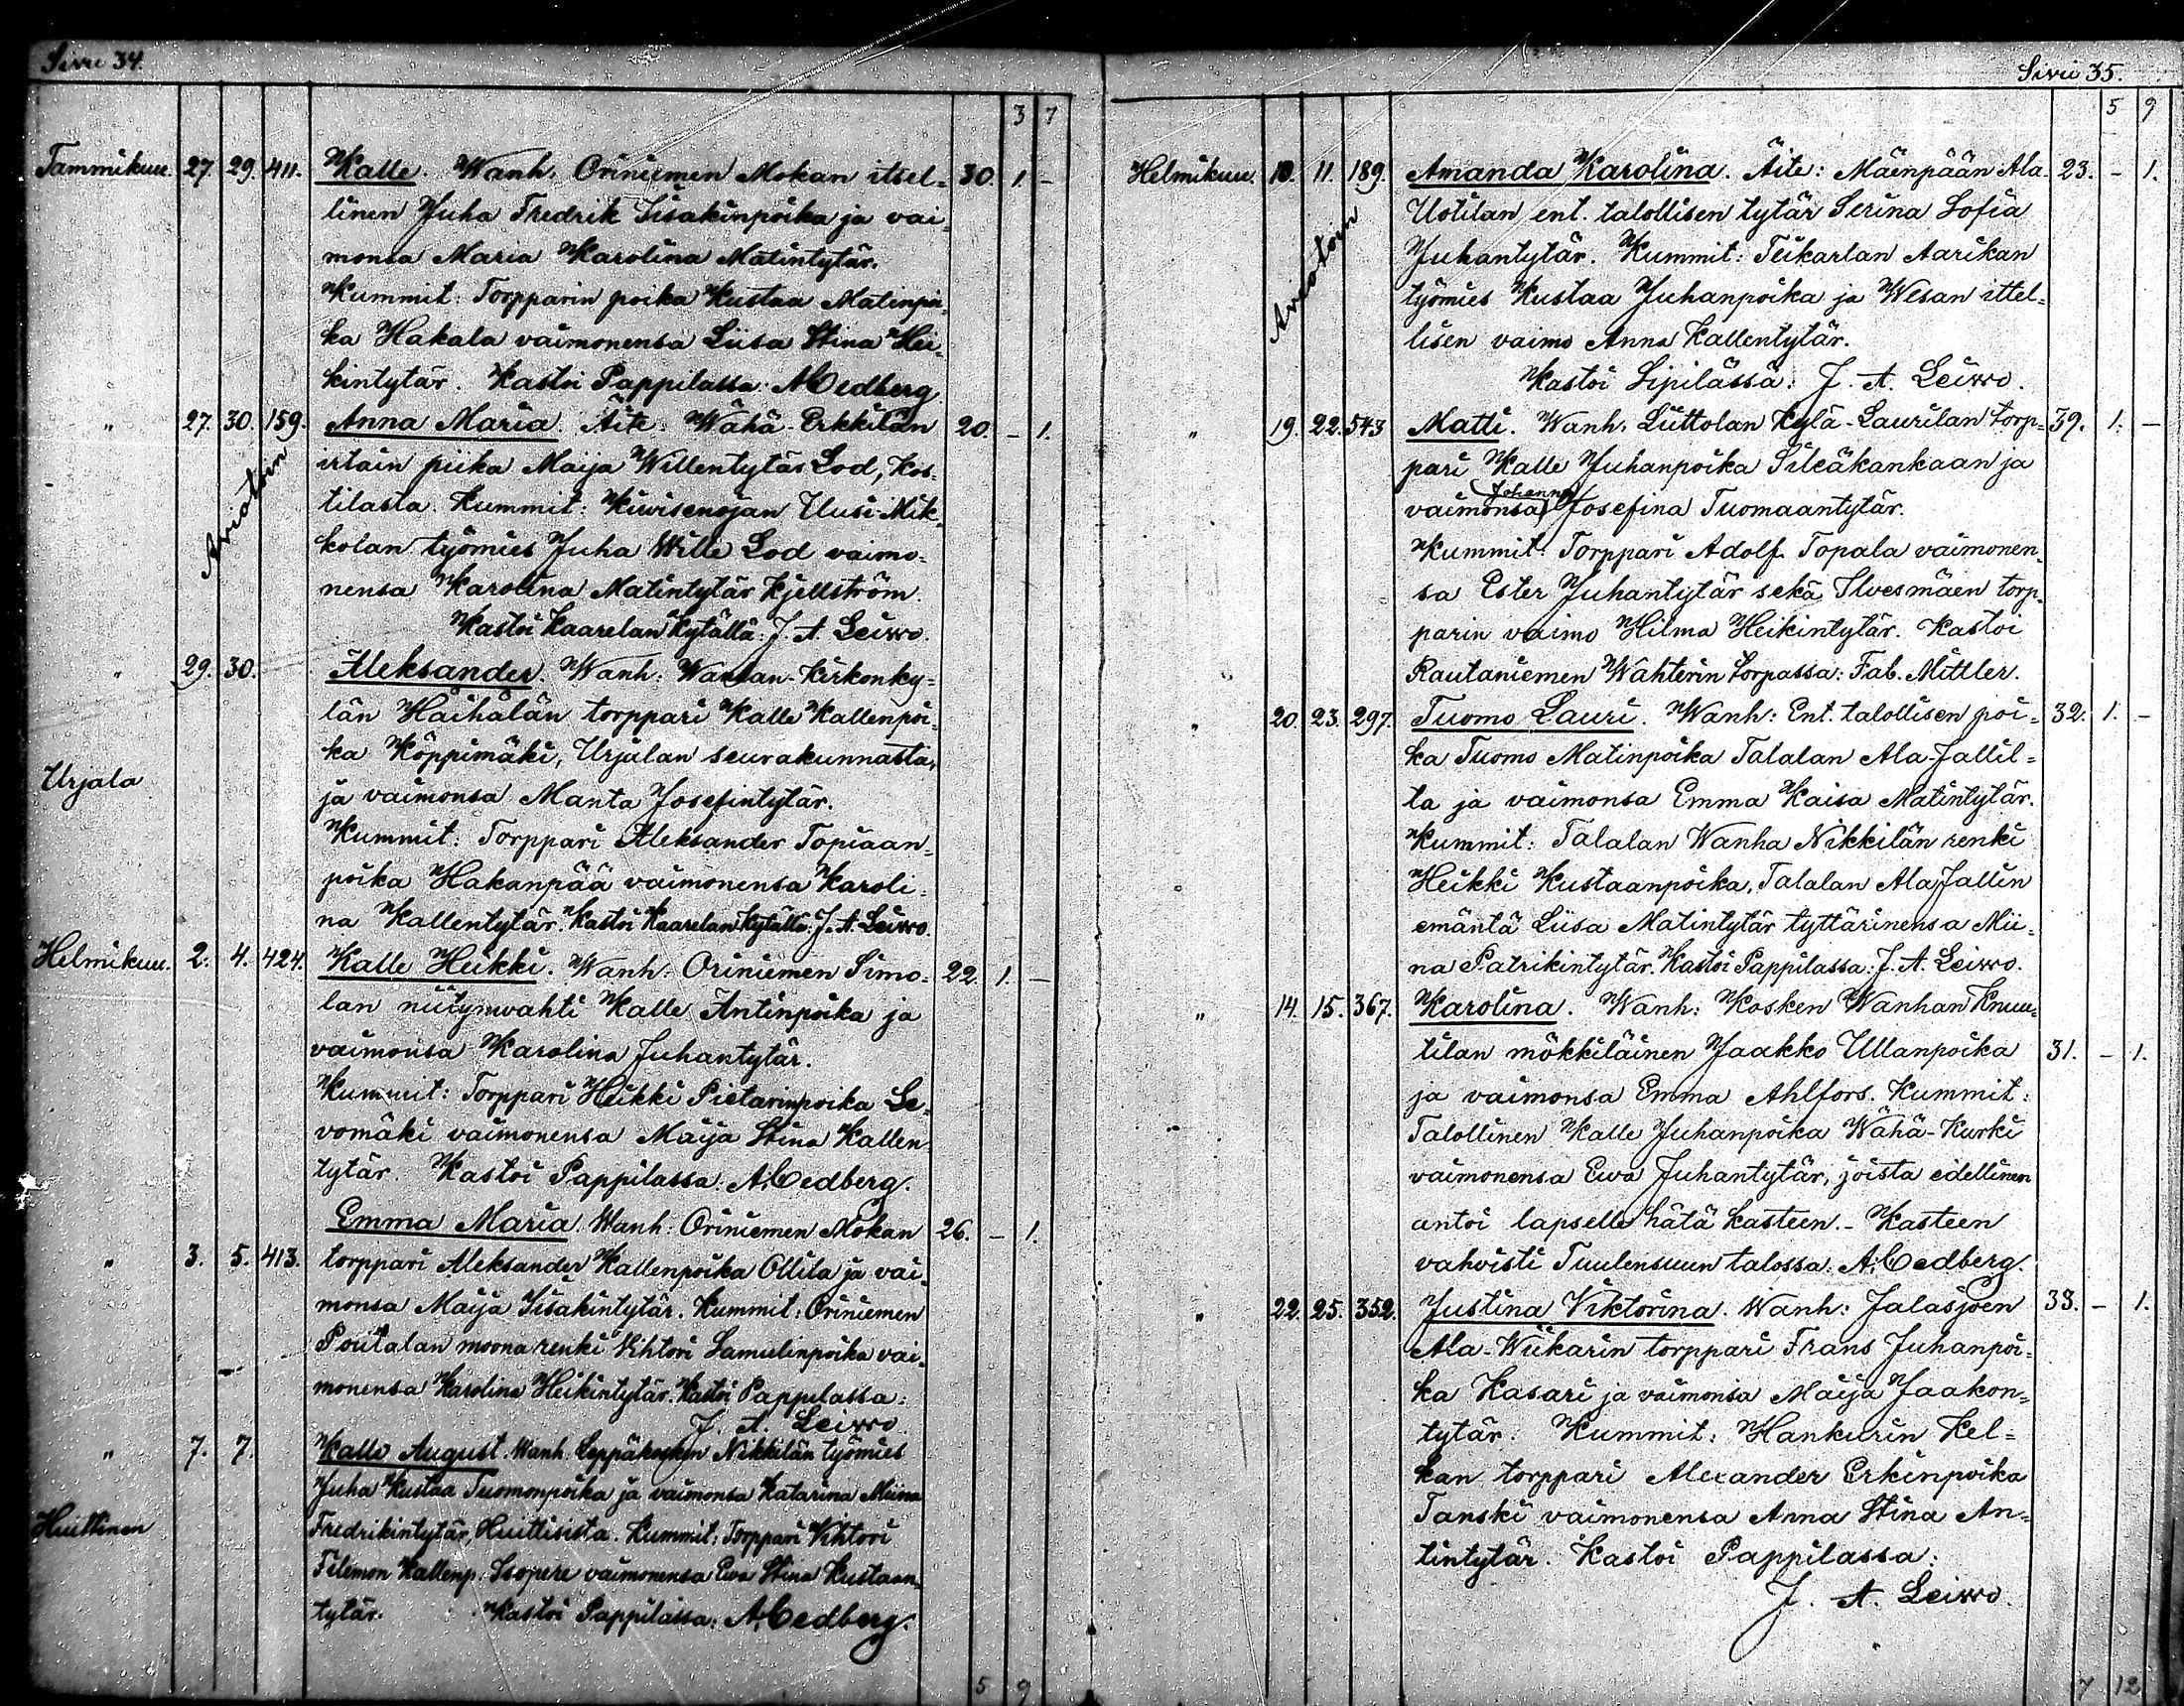 Sivu 34.
3 7
Tammikuu. 27. 29. 411. Kalle. Wanh. Oriniemen Mokan itsel= 30. 1. -
linen Juha Fredrik Iisakinpoika ja vai
monsa Maria Karolina Matintytär.
Kummit: Torpparin poika Kustaa Matinpoi
ka Hakala vaimonensa Liisa Stina Hei
kintytär. Kastoi Pappilassa: A. Cedberg
" 27. 30. 159. Anna Maria. Äite: Wähä-Erkkilän 20. - 1.
Aviotoin
irtain piika Maija Willentytär Lod, Kos
tilasta. Kummit: Kiwisenojan Uusi-Mik
kolan työmies Juha Wille Lod vaimo
nensa Karolina Matintytär Kjellström.
Kastoi Kaarelan Kytällä: J. A. Leiwo.
" 29. 30. Aleksander. Wanh: Kirkonky=
län Haihälän torppari Kalle Kallenpoi
ka Köppimäki, Urjalan seurakunnasta,
Urjala
ja vaimonsa Manta Josefintytär.
Kummit: Torppari Aleksander Topiaan
poika Hakanpää vaimonensa Karoli=
na Kallentytär. Kastoi Kaarelan Kytällä: J. A. Leiwo.
Helmikuu. 2. 4. 424. Kalle Heikki. Wanh: Oriniemen Simo= 22. 1. -
lan niitynwahti Kalle Antinpoika ja
vaimonsa Karolina Juhantytär.
Kummit: Torppari Heikki Pietarinpoika Le
vomäki vaimonensa Maija Stina Kallen
tytär. Kastoi Pappilassa: A. Cedberg.
Emma Maria. Wanh: Oriniemen Mokan 26. - 1.
" 3. 5. 413. torppari Aleksander Kallenpoika Ollila ja vai
monsa Maija Iisakintytär. Kummit: Oriniemen
Poutalan moona renki Vihtori Samulinpoika vai
monensa Karolina Heikintytär. Kastoi Pappilassa:
J. A. Leiwo
" 7. 7. Kalle August. Wanh. Leppäkosken Nikkilän työmies
Juha Kustaa Tuomonpoika ja vaimonsa Katarina Miina
Huittinen
Fredrikintytär, Huittisista. Kummit: Torppari Vihtori
Filemon Kallenp. Isopere vaimonensa Ewa Stina Kustaan
tytär. Kastoi Pappilassa: A. Cedberg.
5 9
Sivu 35.
5 9
Helmikuu. 10. 11. 189. Amanda Karolina. Äite: Mäenpään Ala 23. - 1.
Aviotoin
Uotilan ent. talollisen tytär Serina Sofia
Juhantytär. Kummit: Teikarlan Aarikan
työmies Kustaa Juhanpoika ja Wesan ittel=
lisen vaimo Anna Kallentytär.
Kastoi Sipilässä: J. A. Leiwo.
" 19. 22. 543 Matti. Wanh. Liuttolan Kylä-Laurilan torp= 39. 1. -
pari Kalle Juhanpoika Sileäkankaan ja
Johanna
vaimonsa Josefina Tuomaantytär.
Kummit: Torppari Adolf Topala vaimonen
sa Ester Juhantytär sekä Ilvesmäen torp
parin vaimo Hilma Heikintytär. Kastoi
Rautaniemen Wahterin torpassa: Fab. Mittler.
" 20. 23. 297. Tuomo Lauri. Wanh: Ent. talollisen poi= 32. 1. -
ka Tuomo Matinpoika Talalan Ala-Jallil=
ta ja vaimonsa Emma Kaisa Matintytär.
Kummit: Talalan Wanha Nikkilän renki
Heikki Kustaanpoika, Talalan Ala Jallin
emäntä Liisa Matintytär tyttärinensa Mii
na Patrikintytär. Kastoi Pappilassa: J. A. Leiwo.
" 14. 15. 367. Karolina. Wanh: Kosken Wanhan Knuu=
tilan mökkiläinen Jaakko Ullanpoika 31. - 1.
ja vaimonsa Emma Ahlfors. Kummit:
Talollinen Kalle Juhanpoika Wähä-Kurki
vaimonensa Ewa Juhantytär, joista edellinen
antoi lapselle hätä kasteen. - Kasteen
vahvisti Tuulensuun talossa: A. Cedberg.
" 22. 25. 352. Justina Viktorina. Wanh: Jalasjoen 33. - 1.
Ala-Wiikarin torppari Frans Juhanpoi=
ka Kasari ja vaimonsa Maija Jaakon=
tytär. Kummit: Hankurin Kel=
kan torppari Alexander Erkinpoika
Tanski vaimonensa Anna Stina An=
tintytär. Kastoi Pappilassa:
J. A. Leiwo.
7 12